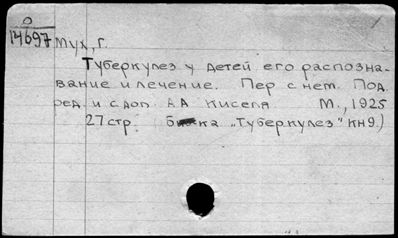 0
14697
Мух, г.
Туберкулез у детей его распозна-
вание и лечение. Пер с нем. Под.
ред. и с доп. А.А Киселя М., 1925
27 стр. б-ка „Туберкулез" кн 9.)